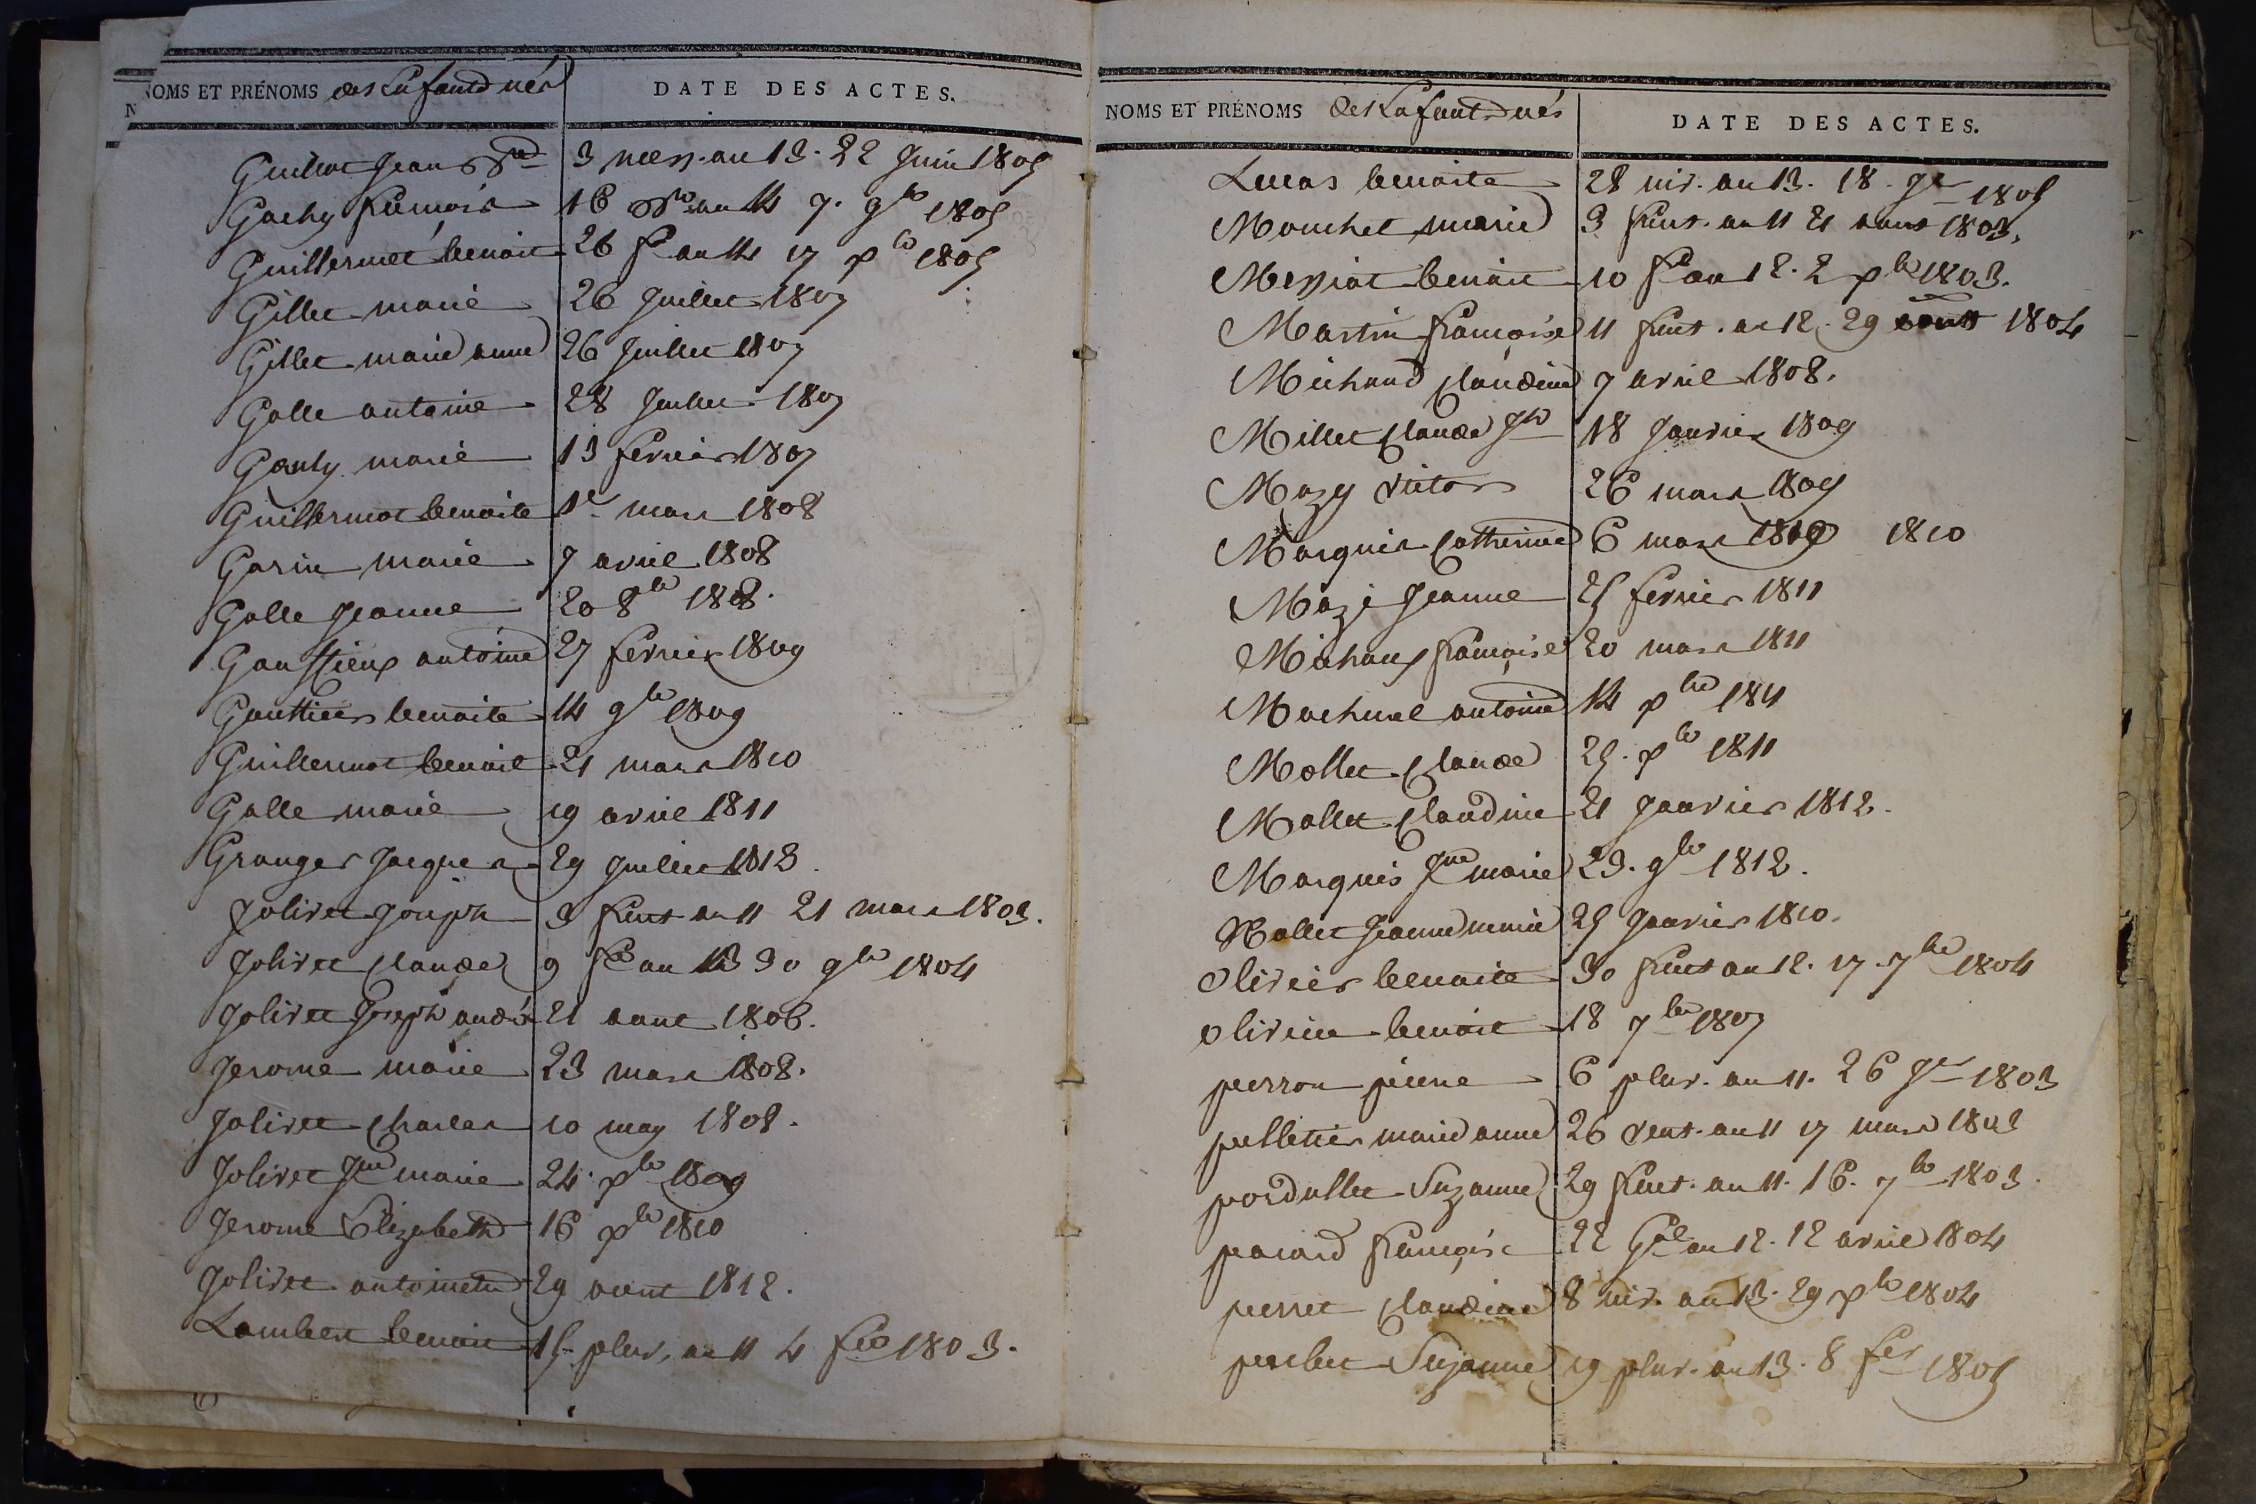 NOMS ET PRÉNOMS des Enfants nés DATE DES ACTES.
Guillot Jean Bd 3 mess. an 13. 22 Juin 1805
Gachy francois 16 Bre an 14 7. 9bre 1805
Guillermet benoit 26 fre an 14 17 xbre 1805
Gillet marie 26 Juillet 1807
Gillet marie anne 26 Juillet 1807
Galle antoine 28 Juillet 1807
Gauly marie 13 fevrier 1807
Guillermot benoite 1er mars 1808
Garin marie 7 avril 1808
Galle Jeanne 20 8bre 1808.
antoine 27 fevrier 1809
Gauttier benoite 14 9bre 1809
Guillermot benoit 21 mars 1810
Galle marie 19 avril 1811
Granger Jacques 29 Juillet 1812.
Jolivet Joseph 3 fruct an 11 21 mars 1803.
Jolivet Claude 9 fre an 13 30 9bre 1804
Jolivet Joseph andré 21 aout 1806.
Jerome marie 23 mars 1808.
Jolivet Charles 10 may 1808.
Jolivet Jne marie 24. xbre 1809
Jerome Elizabeth 16 xbre 1810
Jolivet antoinette 29 aout 1812.
Lambert benoit 15 pluv. an 11 4 fer 1803.
NOMS ET PRÉNOMS des Enfants nés DATE DES ACTES.
Lucas benoite 28 niv. an 13. 18. Jer 1805
Mouchet marie 3 fruct. an 11 21 aout 1803.
Messiat benoit 10 fre an 12. 2 xbre 1803.
Martin francoise 11 fruct. an 12. 29 aout 1804
Michaud Claudine 7 avril 1808.
Millet Claude Jh 18 Janvier 1809
Mazy Victor 26 mars 1809
Marquis Catherine 6 mars 1810 1810
Mazé Jeanne 25 fevrier 1811
Michaux francoise 20 mars 1811
Machurel antoine 14 xbre 1811
Mollet Claude 25. xbre 1811
Mallet Claudine 21 Janvier 1812.
Marquis Jne marie 23. 9bre 1812.
Mallet Jeanne marie 25 Janvier 1810.
Olivier benoite 30 fruct an 12. 17. 7bre 1804
olivier benoit 18 7bre 1807
perron pierre 6 pluv. an 11. 26 Jer 1803
pelletier marie anne 26 vent. an 11 17 mars 1803
pordullet Suzanne 29 fruct. an 11. 16. 7bre 1803.
pacard françoise 22 Gal an 12. 12 avril 1804
perret Claudine 8 niv. an 13. 29 xbre 1804
Suzanne 19 pluv. an 13. 8 fer 1805